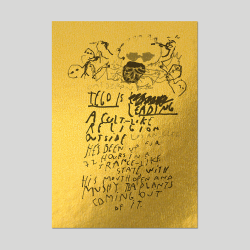 THEO IS
LEADING
A CULT-LIKE
RELIGION
OUTSIDE
HES BEEN UP FOR
72 HOURS IN A
TRANCE-LIKE
STATE WITH
HIS MOUTH OPEN AND
MUSHY TADPLANTS
COMING OUT
OF IT.